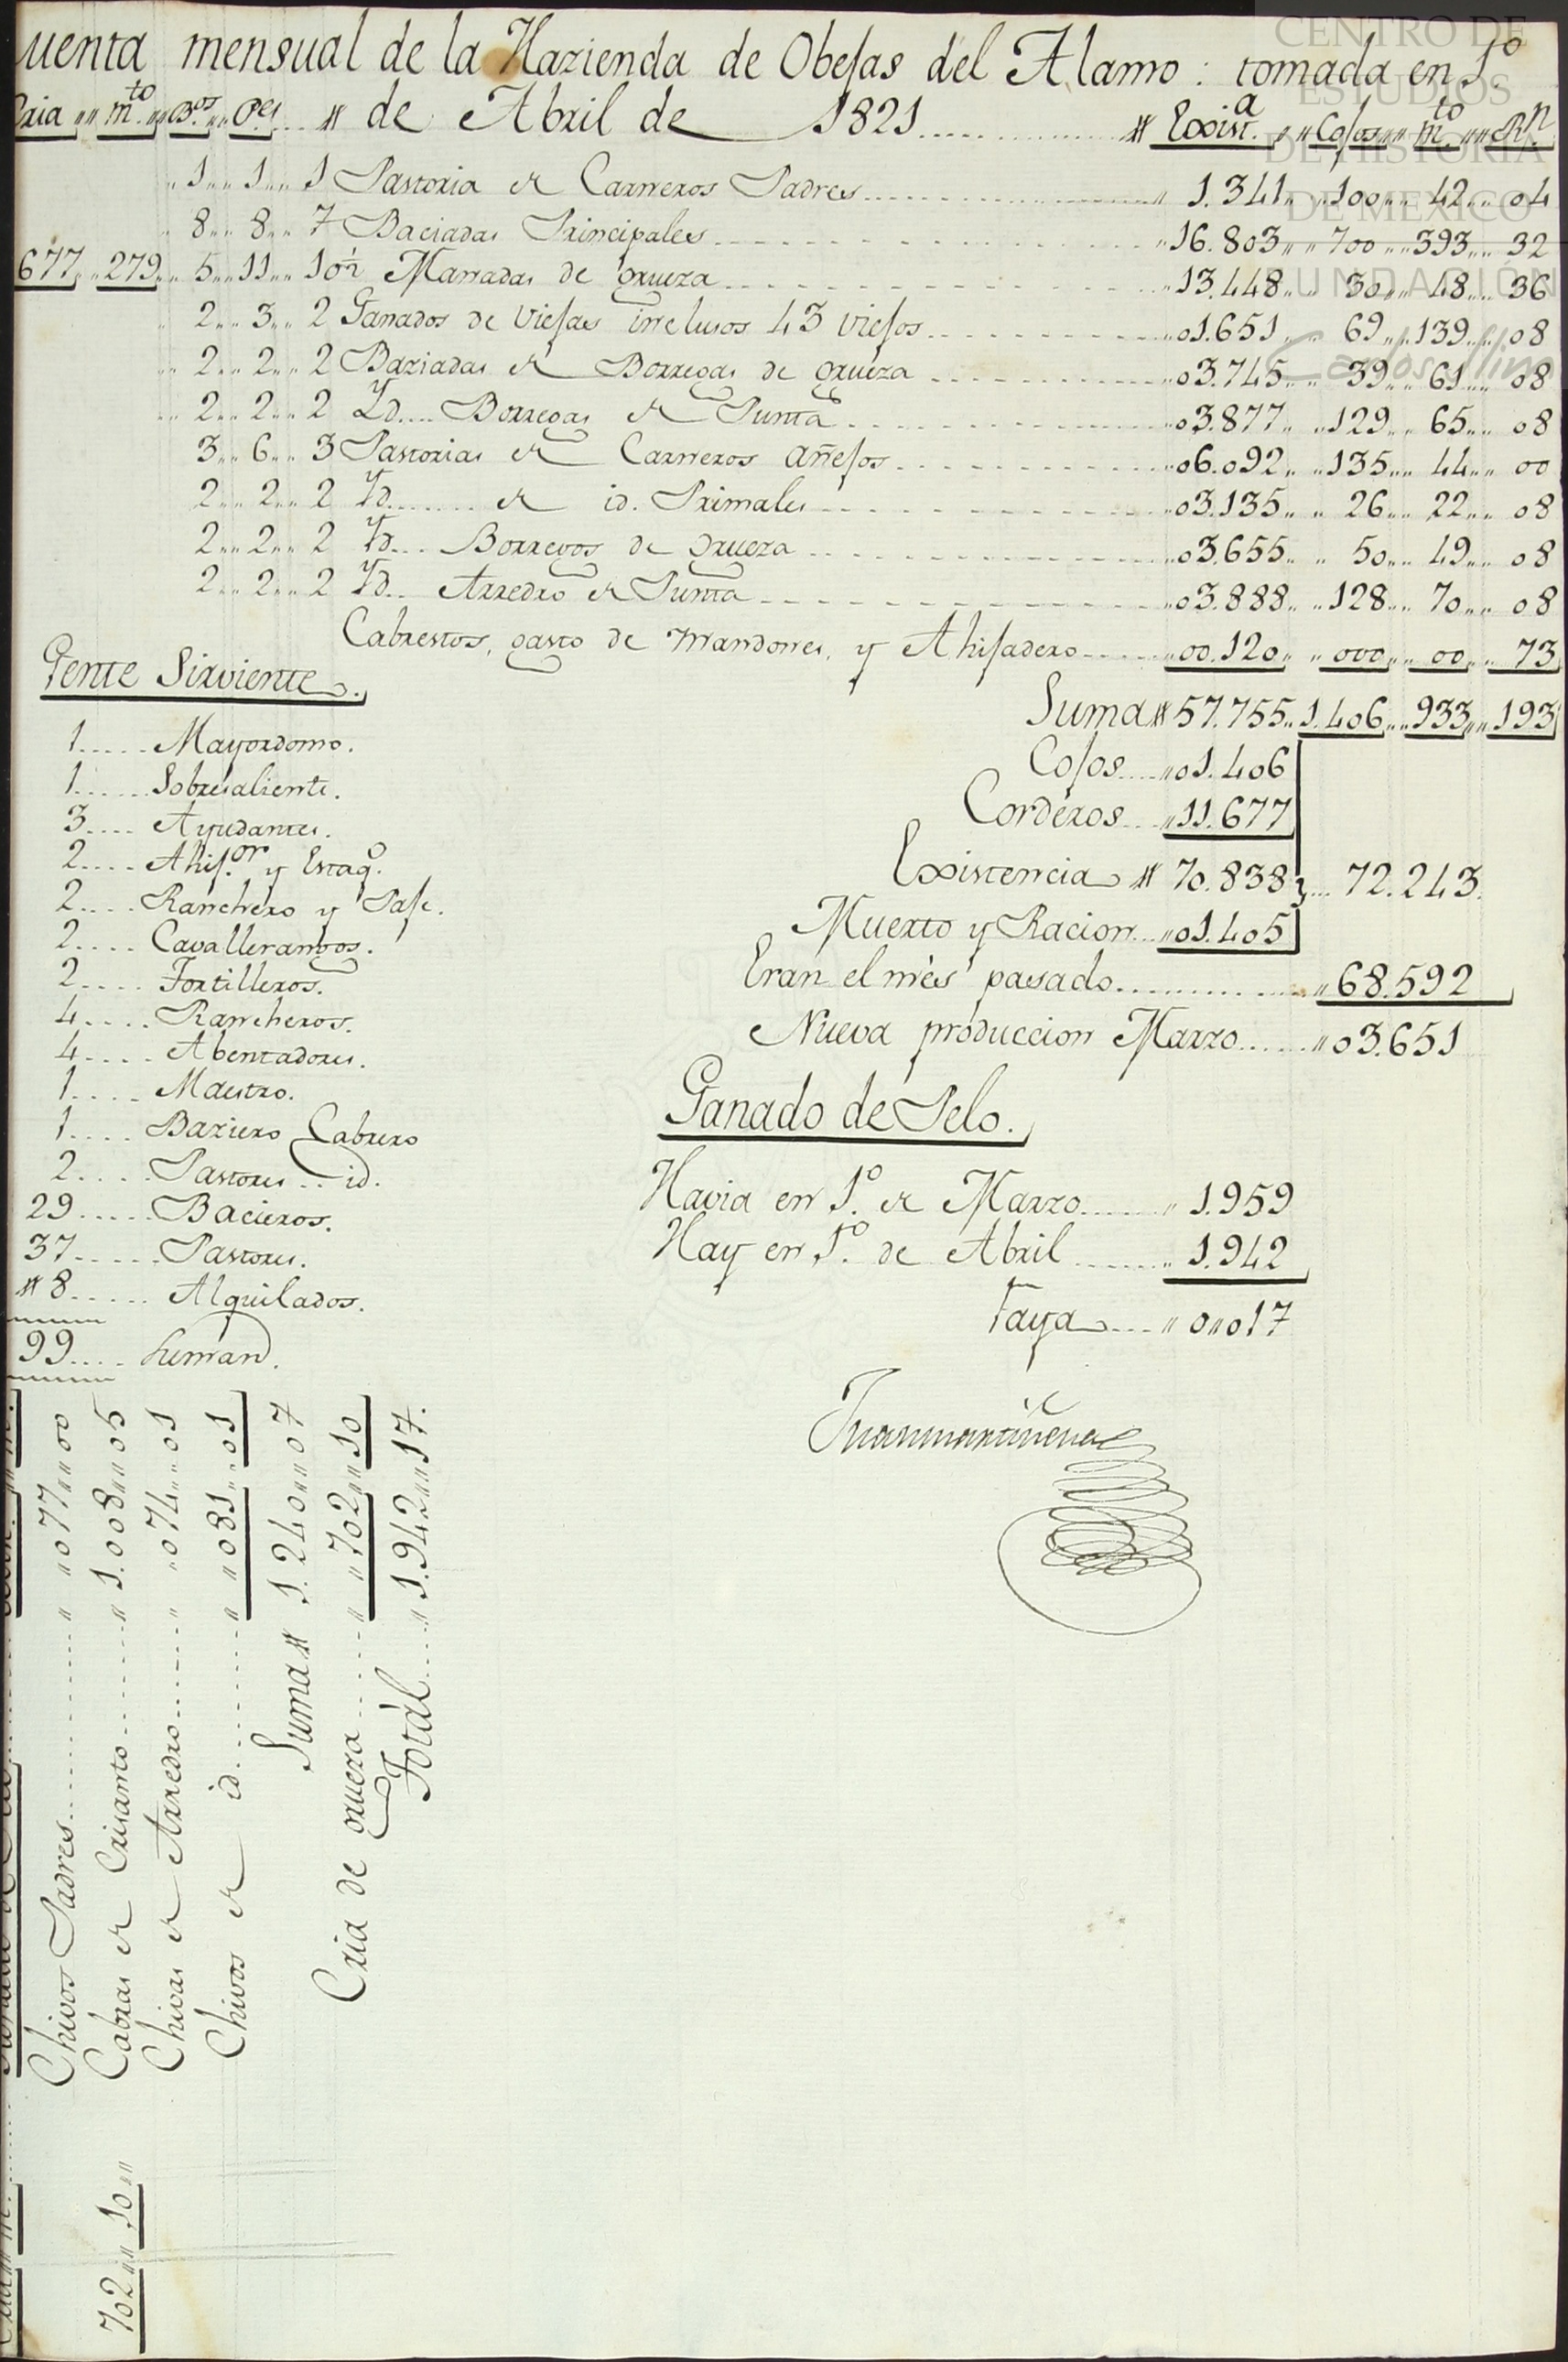 uenta mensual de la Hazienda de Obejas del Alamo: tomada en 1º
Cria " m.to " B.os " P.es " de Abril de 1821 " Exist.a " Cojos " m.to " R.n
1 " 1 " 1 Pastoria de Carneros Padres " 1.341 " 100 " 42 " 04
8 " 8 " 7 Baciadas Principales " 16.803 " 700 " 393 " 32
677 " 279 " 5 " 11 " 10½ Manadas de grueza " 13.448 " 30 " 48 " 36
2 " 3 " 2 Ganados de Viejas inclusos 43 viejos " 01.651 " 69 " 139 " 08
2 " 2 " 2 Baziadas de Borregas de grueza " 03.745 " 39 " 61 " 08
2 " 2 " 2 Yd. Borregas de Punta " 03.877 " 129 " 65 " 08
3 " 6 " 3 Pastorias de Carneros añejos " 06.092 " 135 " 44 " 00
2 " 2 " 2 Yd. de id. Primales " 03.135 " 26 " 22 " 08
2 " 2 " 2 Yd. Borregos de grueza " 03.655 " 50 " 49 " 08
2 " 2 " 2 Yd. Arredro de Punta " 03.888 " 128 " 70 " 08
Cabrestos, gasto de Mandones, y Ahijadero " 00.120 " 000 " 00 " 73
Suma # 57.755 " 1.406 " 933 " 193
Cojos " 01.406
Corderos " 11.677
Existencia # 70.838 72.243
Muerto y Racion " 01.405
Eran el mes pasado " 68.592
Nueva produccion Marzo " 03.651
Gente Sirviente.
1 Mayordomo.
1 Sobresaliente.
3 Ayudantes.
2 Ahij.or y Estaq.o
2 Ranchero y Paje.
2 Cavallerangos.
2 Tortilleros.
4 Rancheros.
4 Abentadores.
1 Maestro.
1 Baziero Cabrero
2 Pastores id.
29 Bacieros.
37 Pastores.
# 8 Alquilados.
99 Suman.
Ganado de Pelo.
Havia en 1º de Marzo " 1.959
Hay en 1º de Abril " 1.942
Faya " 0"017
Chivos Padres " 077 " 00
Cabras de Crisanto " 1.008 " 05
Chivas de Arredro " 074 " 01
Chivos de id. " 081 " 01
Suma # 1.240 " 07
Cria de grueza " 702 " 10
Total " 1.942 " 17.
702 " 10
CENTRO DE
ESTUDIOS
DE HISTORIA
DE MEXICO
FUNDACIÓN
Carlos Slim